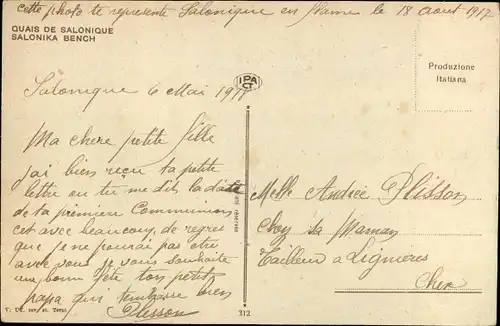 cette photo te represente Salonique en flame le 18 aout 1917
QUAIS DE SALONIQUE
SALONIKA BENCH
Produzione
Italiana
IPA
CT
Salonique 6 Mai 191
Ma chere petite fille
j'ai bien reçu ta petite
lettre en tu me dits la date
de ta premiere Communion
cet avec beaucoup de regres
que je ne pourai pas etre
avec vous je vous souhaite
une bonne fête ton petit
papa qui tembrasse bien
Plisson
Melle Andrée Plisson
chez sa Maman
Tailleur a Lignieres
Cher
312